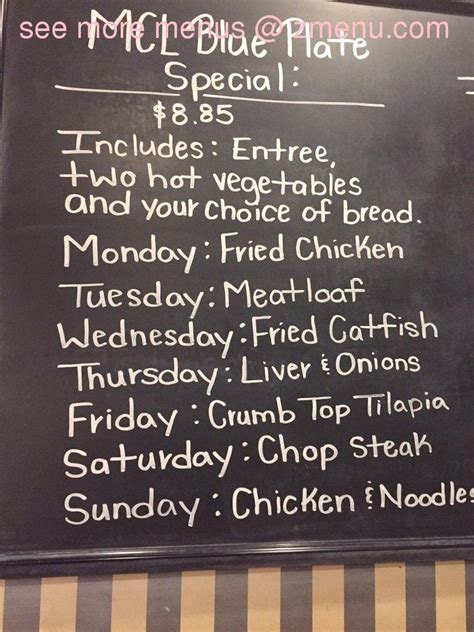 see more menus @ zmenu.com
MCL Blue Plate
Special:
$8.85
Includes: Entree,
two hot vegetables
and your choice of bread.
Monday: Fried Chicken
Tuesday: Meatloaf
Wednesday: Fried Catfish
Thursday: Liver & Onions
Friday: Crumb Top Tilapia
Saturday: Chop Steak
Sunday: Chicken & Noodles